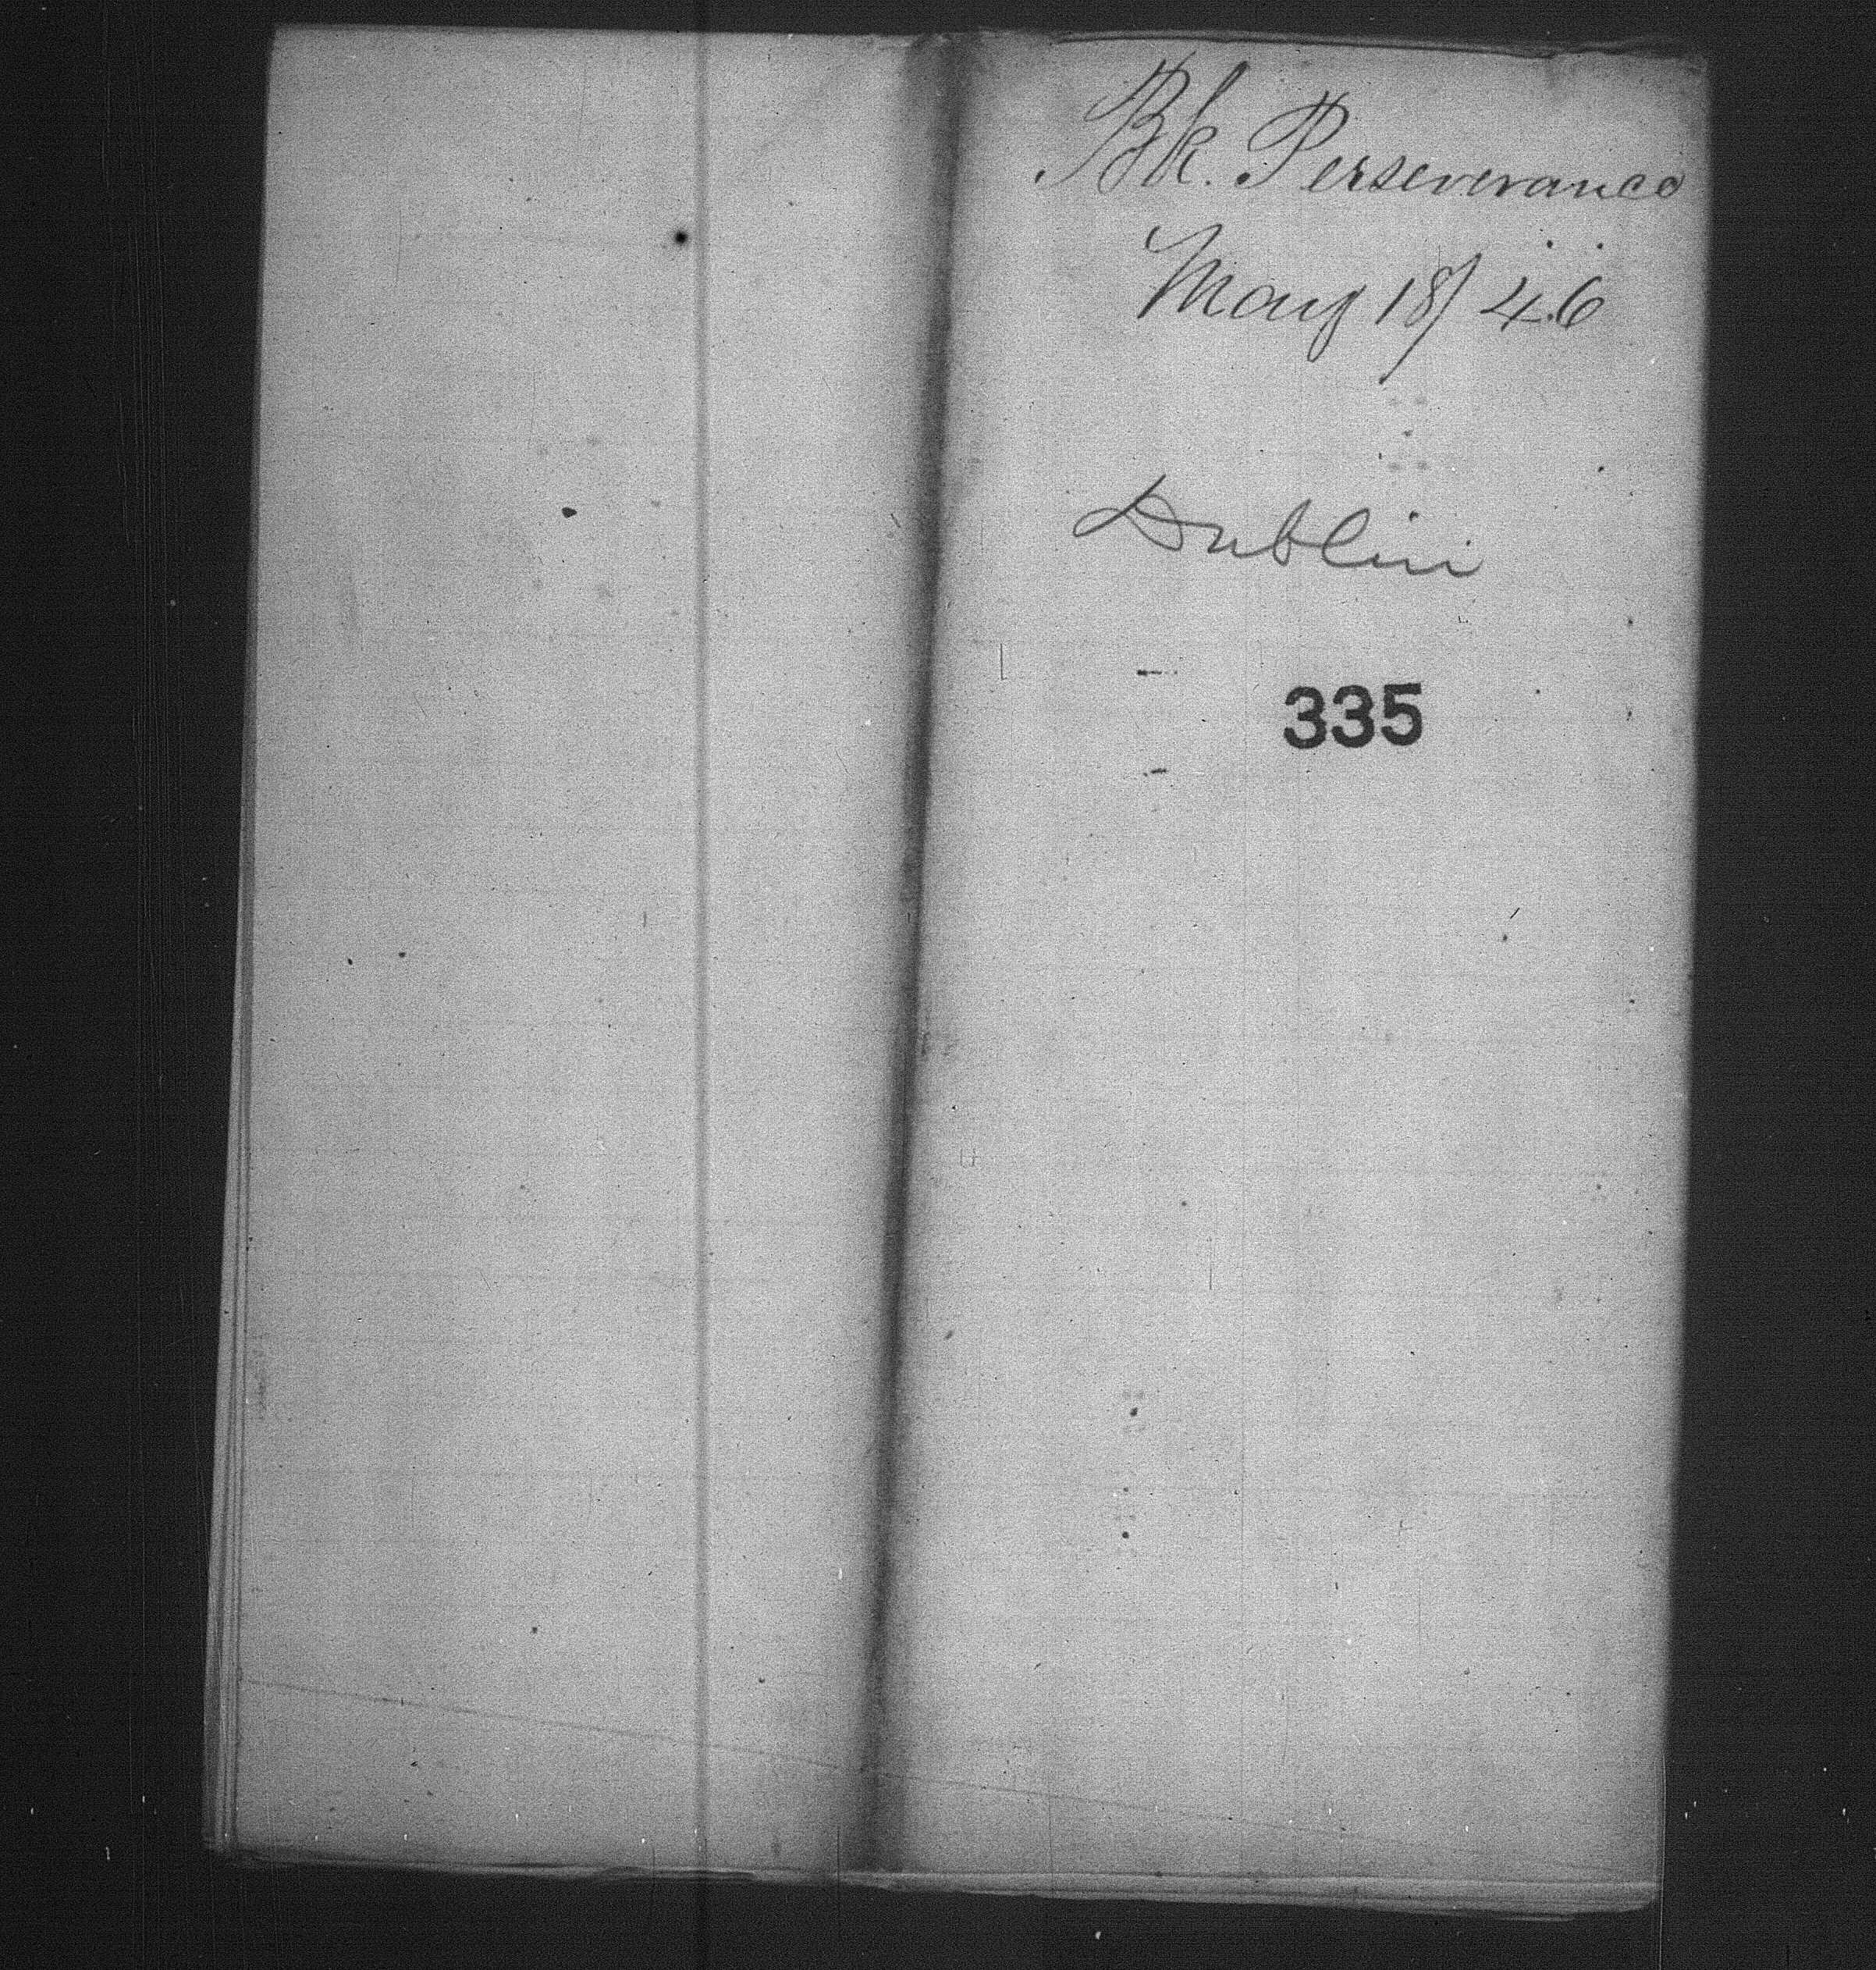 Bk. Perseverance
May 18/46
Dublin
335